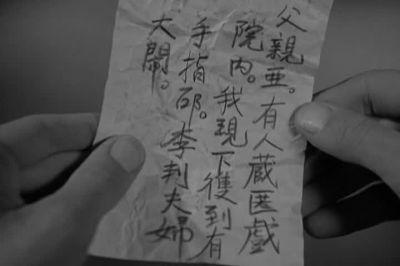 父親亜。有人蔵匿戲
院内。我現下獲到有
手指印。李判夫婦
大鬧。